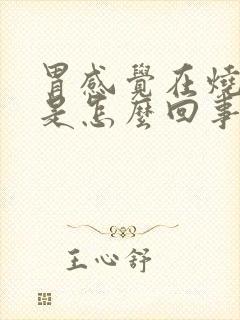 胃感覺在燒
是怎麼回事
王心舒